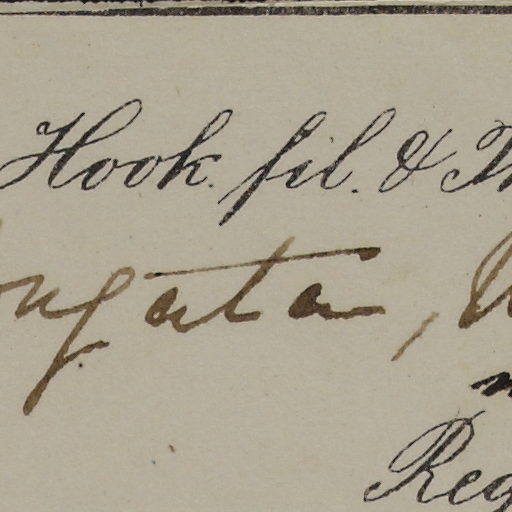 Hook. fil. & Th
ongata,
Reg